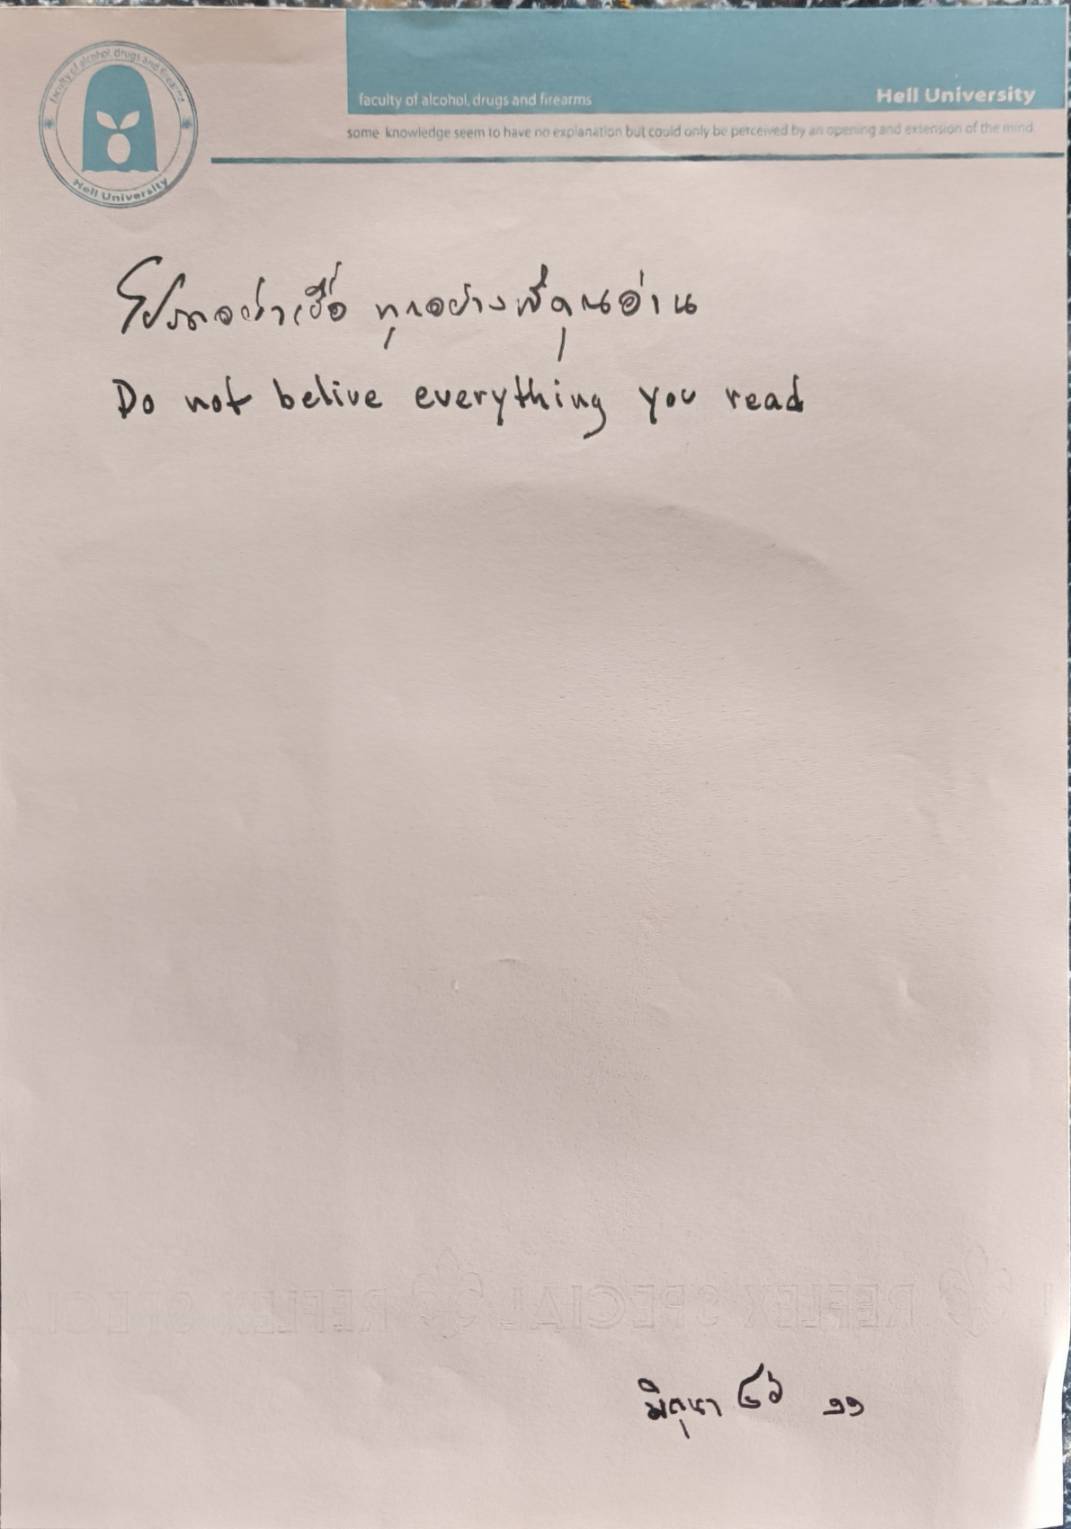 faculty of alcohol, drugs and firearms
Hell University
faculty of alcohol, drugs and firearms
Hell University
some knowledge seem to have no explanation but could only be perceived by an opening and extension of the mind
โปรดอย่าเชื่อ ทุกอย่างที่คุณอ่าน
Do not belive everything you read
REFLEX SPECIAL REFLEX SPECIAL
มิถุนา ๘๖ ๑๑